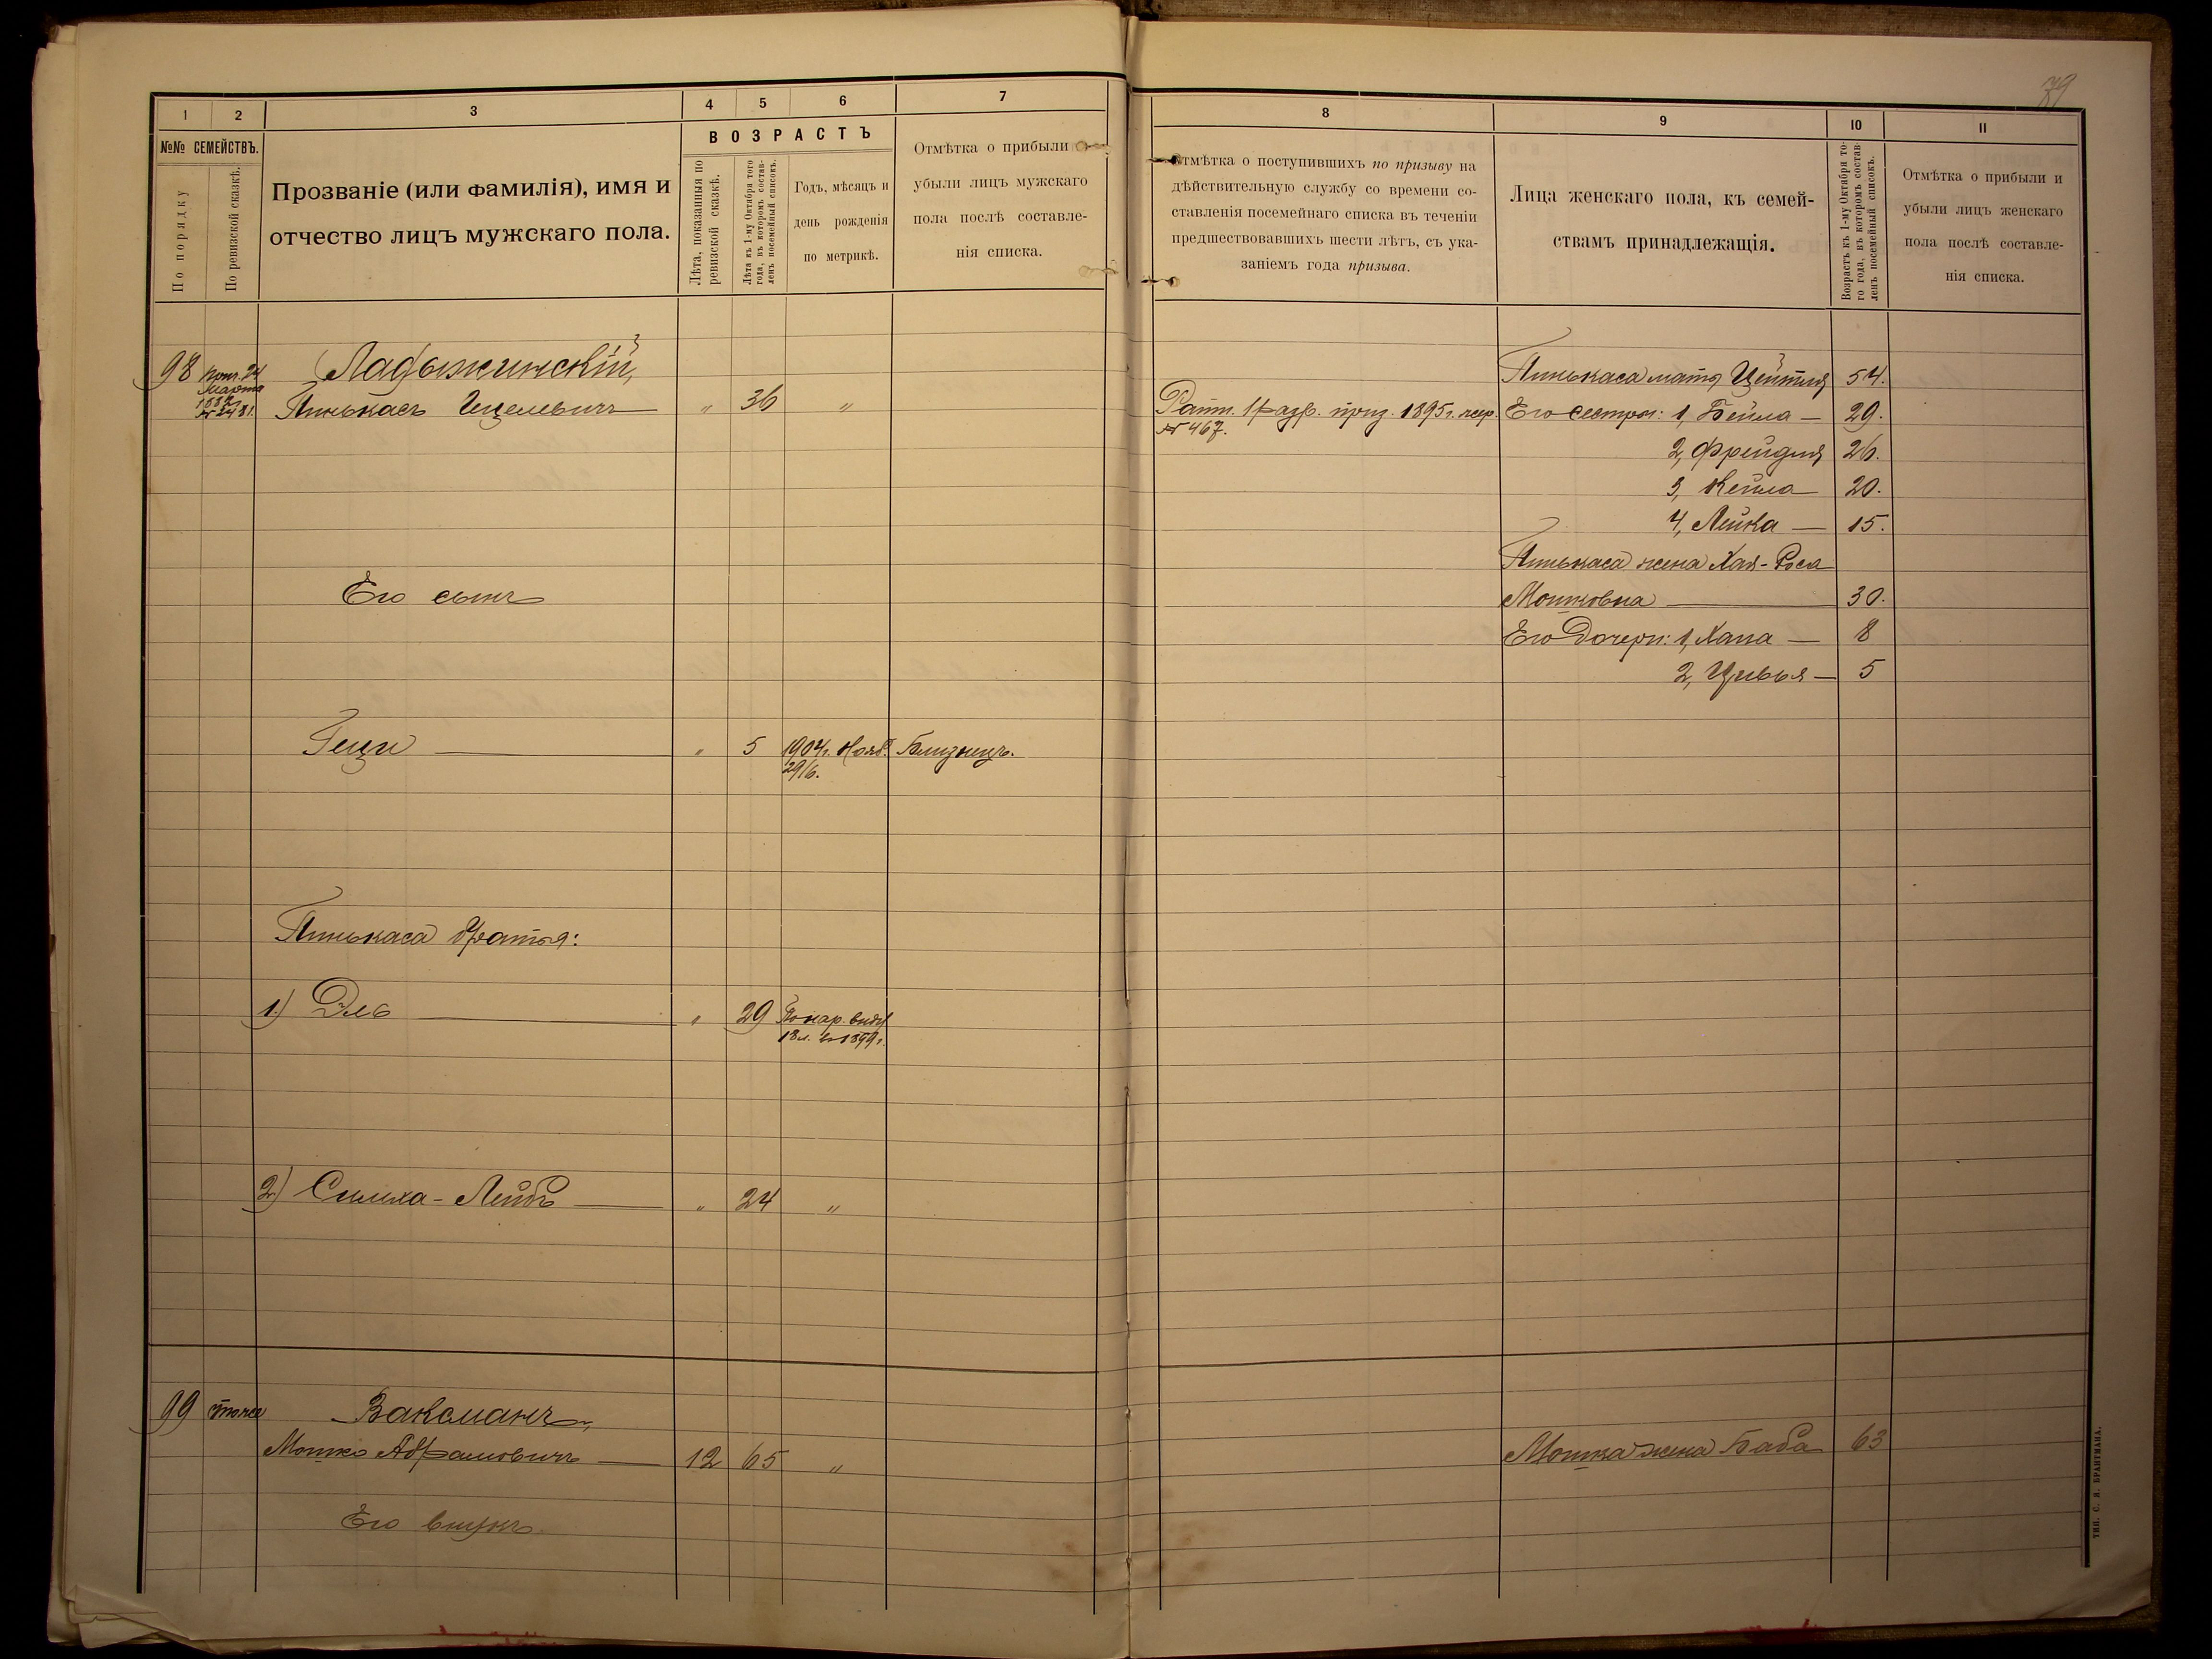 79
1 2 3 4 5 6 7
№№ СЕМЕЙСТВЪ.
По порядку
По ревизской сказкѣ.
Прозваніе (или фамилія), имя и
отчество лицъ мужскаго пола.
ВОЗРАСТЪ
Лѣта, показанныя по
ревизской сказкѣ.
Лѣта къ 1-му Октября того
года, въ которомъ состав-
ленъ посемейный списокъ.
Годъ, мѣсяцъ и
день рожденія
по метрикѣ.
Отмѣтка о прибыли и
убыли лицъ мужскаго
пола послѣ составле-
нія списка.
98
24
Марта
№ 2431.
Ладыжинскій,
Пинькасъ Ицелевичъ „ 36 „
Его сынъ
Геци „ 5 1904 г. Нояб. Близнецъ.
29/6.
Пинькаса братья:
1.) Эль „ 29 По нар. виду
18 л. въ 1899 г.
2) Симха-Лейбъ „ 24 „
99 тоже Ваксманъ,
Мошко Абрамовичъ 12 65 „
Его внукъ
8 9 10 11
Отмѣтка о поступившихъ по призыву на
дѣйствительную службу со времени со-
ставленія посемейнаго списка въ теченіи
предшествовавшихъ шести лѣтъ, съ ука-
заніемъ года призыва.
Лица женскаго пола, къ семей-
ствамъ принадлежащія.
Возрастъ къ 1-му Октября то-
го года, въ которомъ состав-
ленъ посемейный списокъ.
Отмѣтка о прибыли и
убыли лицъ женскаго
пола послѣ составле-
нія списка.
Пинькаса мать Цейтля 54.
Ратн. 1 разр. приз. 1895 г. жер. Его сестры: 1, Бейла — 29.
№ 467.
2, Фрейдля 26.
3, Кейла 20.
4, Лейка — 15.
Пинькаса жена Хая-Роса
Мошковна 30.
Его дочери: 1, Хана — 8
2, Цивья — 5
Мошка жена Баба 63
ТИП. С. Я. БРАНТМАНА.